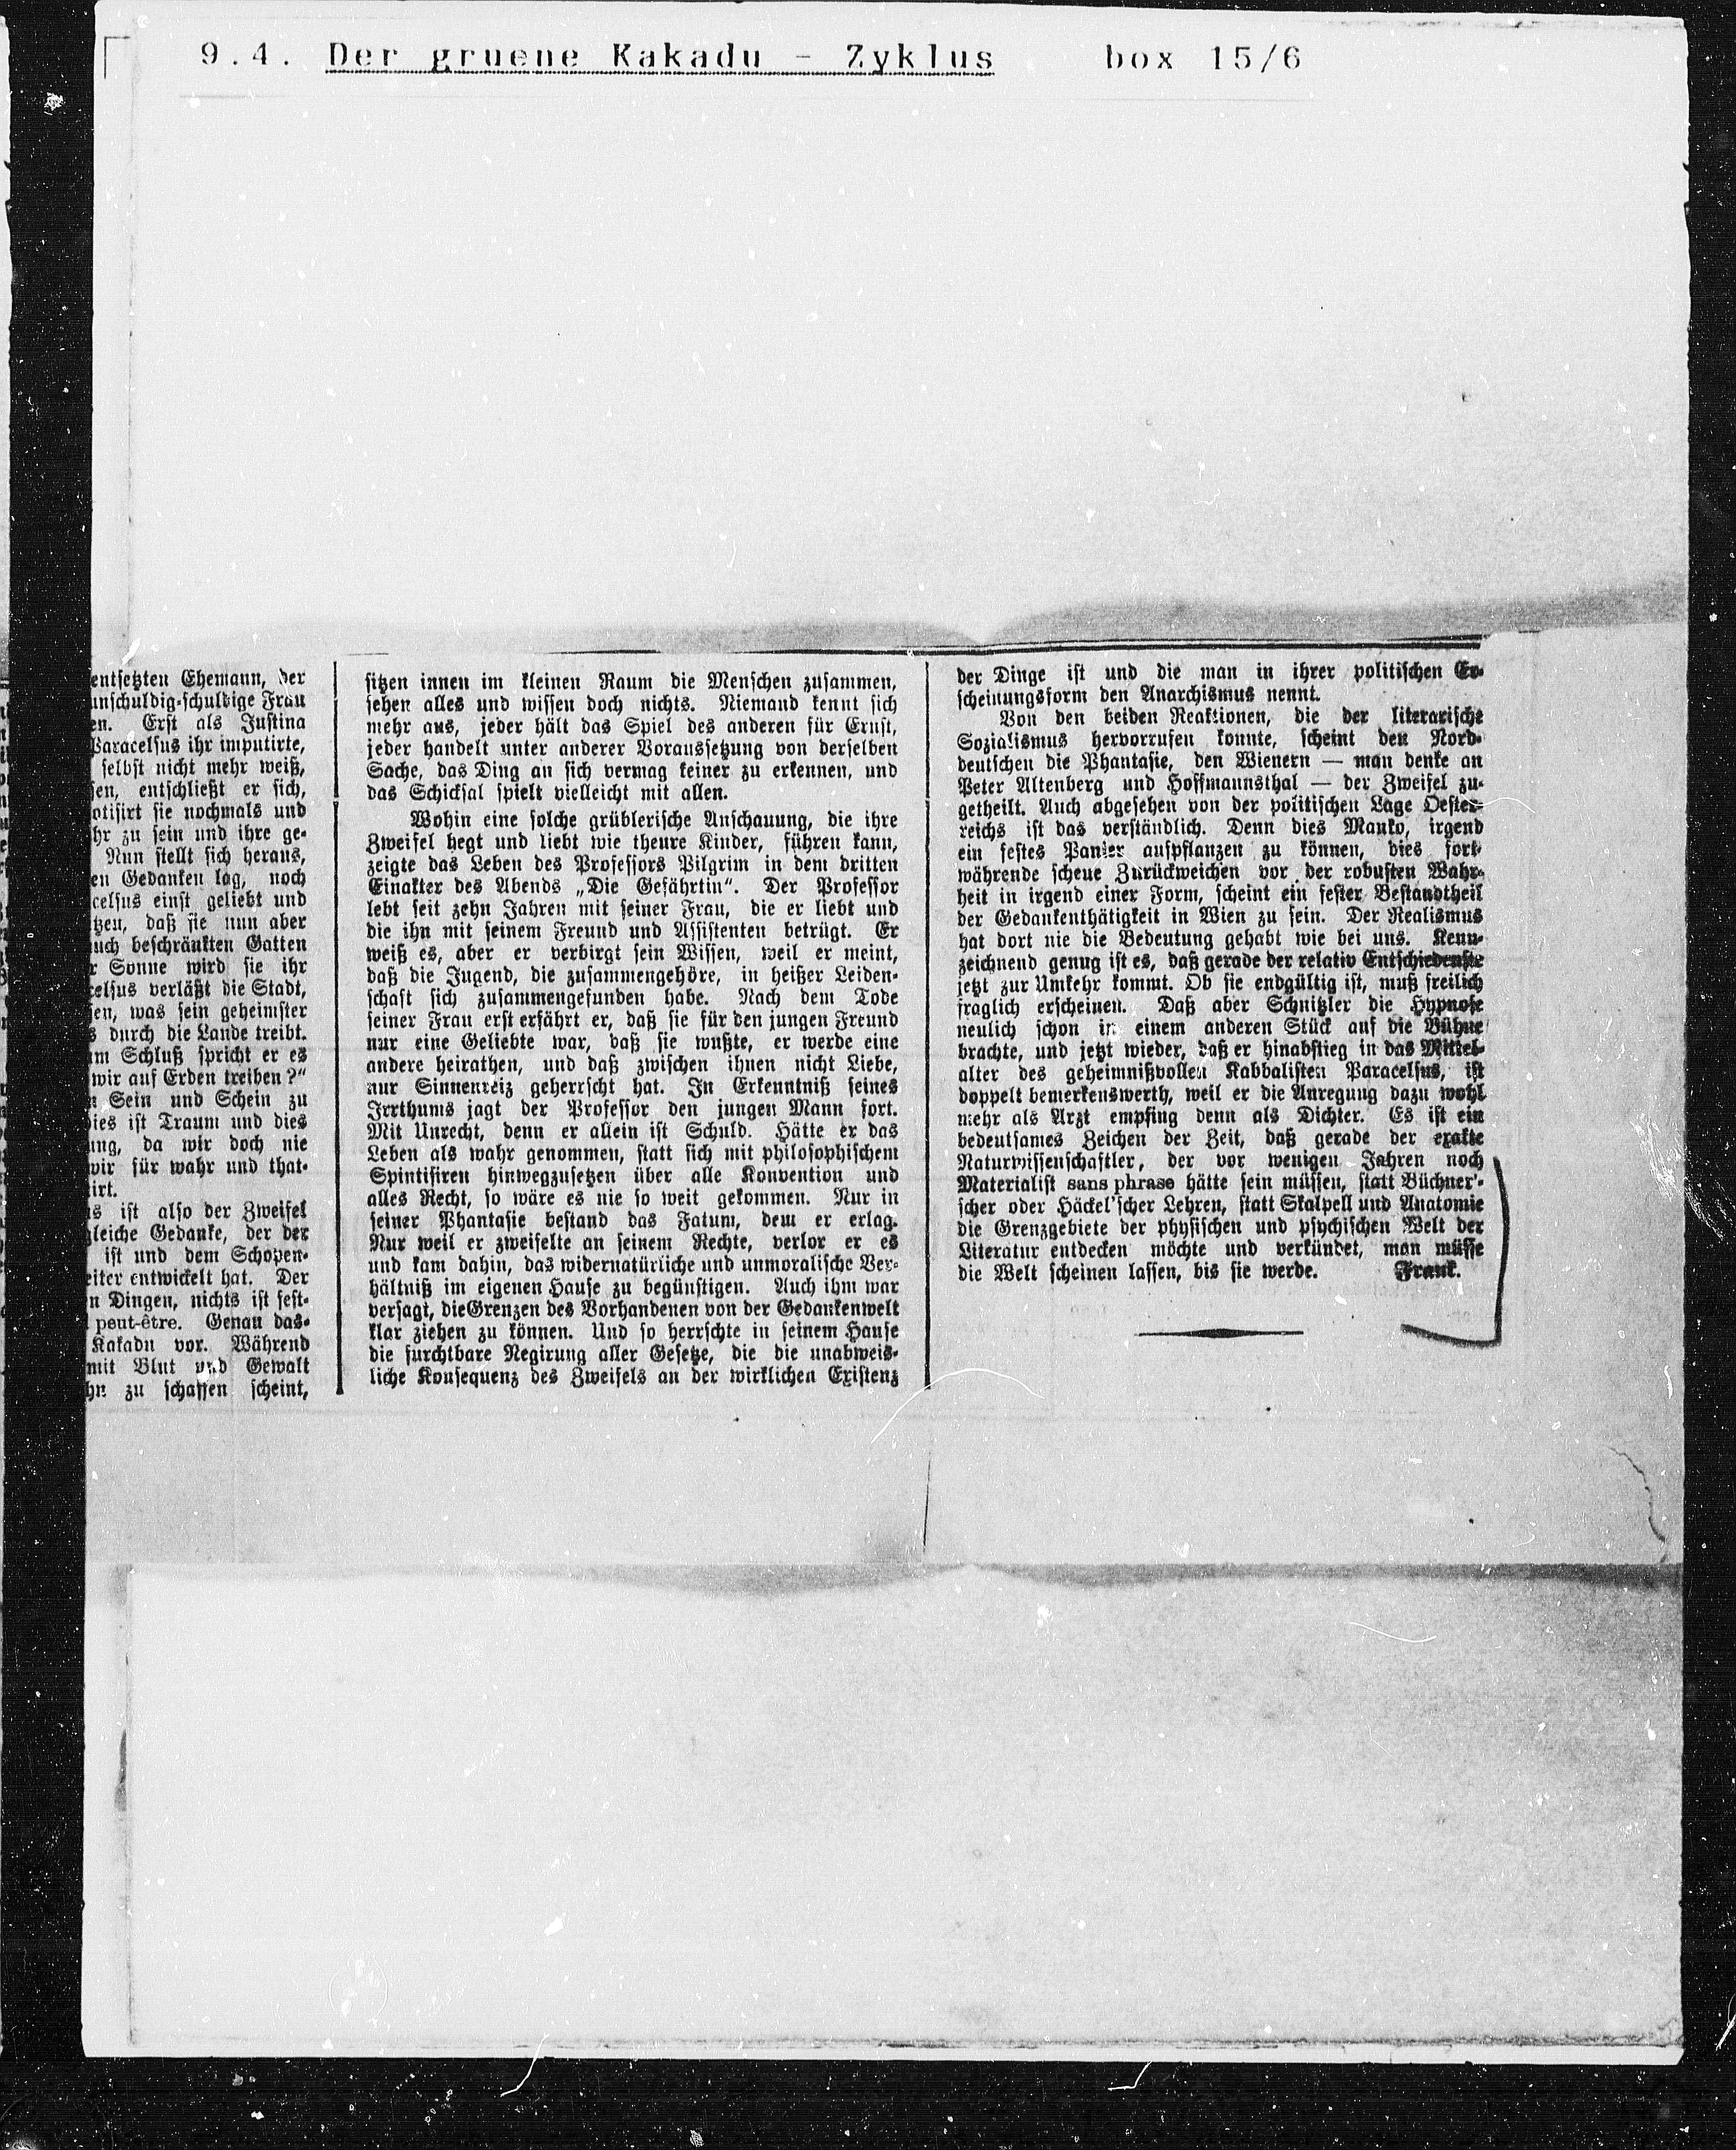 9.4. Der gruene Kakadu - Zyklus box 15/6
entsetzten Ehemann, der
unschuldig-schuldige Frau
en. Erst als Justina
Paracelsus ihr imputirte,
selbst nicht mehr weiß,
sen, entschließt er sich,
otisirt sie nochmals und
hr zu sein und ihre ge-
Nun stellt sich heraus,
en Gedanken lag, noch
celsus einst geliebt und
tzen, daß sie nun aber
uch beschränkten Gatten
r Sonne wird sie ihr
celsus verläßt die Stadt,
sen, was sein geheimster
s durch die Lande treibt.
um Schluß spricht er es
wir auf Erden treiben?“
n Sein und Schein zu
dies ist Traum und dies
ung, da wir doch nie
wir für wahr und that-
irt.
is ist also der Zweifel
gleiche Gedanke, der der
ist und dem Schopen-
eiter entwickelt hat. Der
n Dingen, nichts ist fest-
peut-être. Genau das-
Kakadu vor. Während
mit Blut und Gewalt
hn zu schaffen scheint,
sitzen innen im kleinen Raum die Menschen zusammen,
sehen alles und wissen doch nichts. Niemand kennt sich
mehr aus, jeder hält das Spiel des anderen für Ernst,
jeder handelt unter anderer Voraussetzung von derselben
Sache, das Ding an sich vermag keiner zu erkennen, und
das Schicksal spielt vielleicht mit allen.
Wohin eine solche grüblerische Anschauung, die ihre
Zweifel hegt und liebt wie theure Kinder, führen kann,
zeigte das Leben des Professors Pilgrim in dem dritten
Einakter des Abends „Die Gefährtin“. Der Professor
lebt seit zehn Jahren mit seiner Frau, die er liebt und
die ihn mit seinem Freund und Assistenten betrügt. Er
weiß es, aber er verbirgt sein Wissen, weil er meint,
daß die Jugend, die zusammengehöre, in heißer Leiden-
schaft sich zusammengefunden habe. Nach dem Tode
seiner Frau erst erfährt er, daß sie für den jungen Freund
nur eine Geliebte war, daß sie wußte, er werde eine
andere heirathen, und daß zwischen ihnen nicht Liebe,
nur Sinnenreiz geherrscht hat. In Erkenntniß seines
Irrthums jagt der Professor den jungen Mann fort.
Mit Unrecht, denn er allein ist Schuld. Hätte er das
Leben als wahr genommen, statt sich mit philosophischem
Spintisiren hinwegzusetzen über alle Konvention und
alles Recht, so wäre es nie so weit gekommen. Nur in
seiner Phantasie bestand das Fatum, dem er erlag.
Nur weil er zweifelte an seinem Rechte, verlor er es
und kam dahin, das widernatürliche und unmoralische Ver-
hältniß im eigenen Hause zu begünstigen. Auch ihm war
versagt, die Grenzen des Vorhandenen von der Gedankenwelt
klar ziehen zu können. Und so herrschte in seinem Hause
die furchtbare Negirung aller Gesetze, die die unabweis-
liche Konsequenz des Zweifels an der wirklichen Existenz
der Dinge ist und die man in ihrer politischen Er-
scheinungsform den Anarchismus nennt.
Von den beiden Reaktionen, die der literarische
Sozialismus hervorrufen konnte, scheint den Nord-
deutschen die Phantasie, den Wienern — man denke an
Peter Altenberg und Hoffmannsthal — der Zweifel zu-
getheilt. Auch abgesehen von der politischen Lage Oester-
reichs ist das verständlich. Denn dies Manko, irgend
ein festes Panier aufpflanzen zu können, dies fort-
währende scheue Zurückweichen vor der robusten Wahr-
heit in irgend einer Form, scheint ein fester Bestandtheil
der Gedankenthätigkeit in Wien zu sein. Der Realismus
hat dort nie die Bedeutung gehabt wie bei uns. Kenn-
zeichnend genug ist es, daß gerade der relativ Entschiedenste
jetzt zur Umkehr kommt. Ob sie endgültig ist, muß freilich
fraglich erscheinen. Daß aber Schnitzler die Hypnose
neulich schon in einem anderen Stück auf die Bühne
brachte, und jetzt wieder, daß er hinabstieg in das Mittel-
alter des geheimnißvollen Kabbalisten Paracelsus, ist
doppelt bemerkenswerth, weil er die Anregung dazu wohl
mehr als Arzt empfing denn als Dichter. Es ist ein
bedeutsames Zeichen der Zeit, daß gerade der exakte
Naturwissenschaftler, der vor wenigen Jahren noch
Materialist sans phrase hätte sein müssen, statt Büchner'-
scher oder Häckel'scher Lehren, statt Skalpell und Anatomie
die Grenzgebiete der physischen und psychischen Welt der
Literatur entdecken möchte und verkündet, man müsse
die Welt scheinen lassen, bis sie werde. Frank.